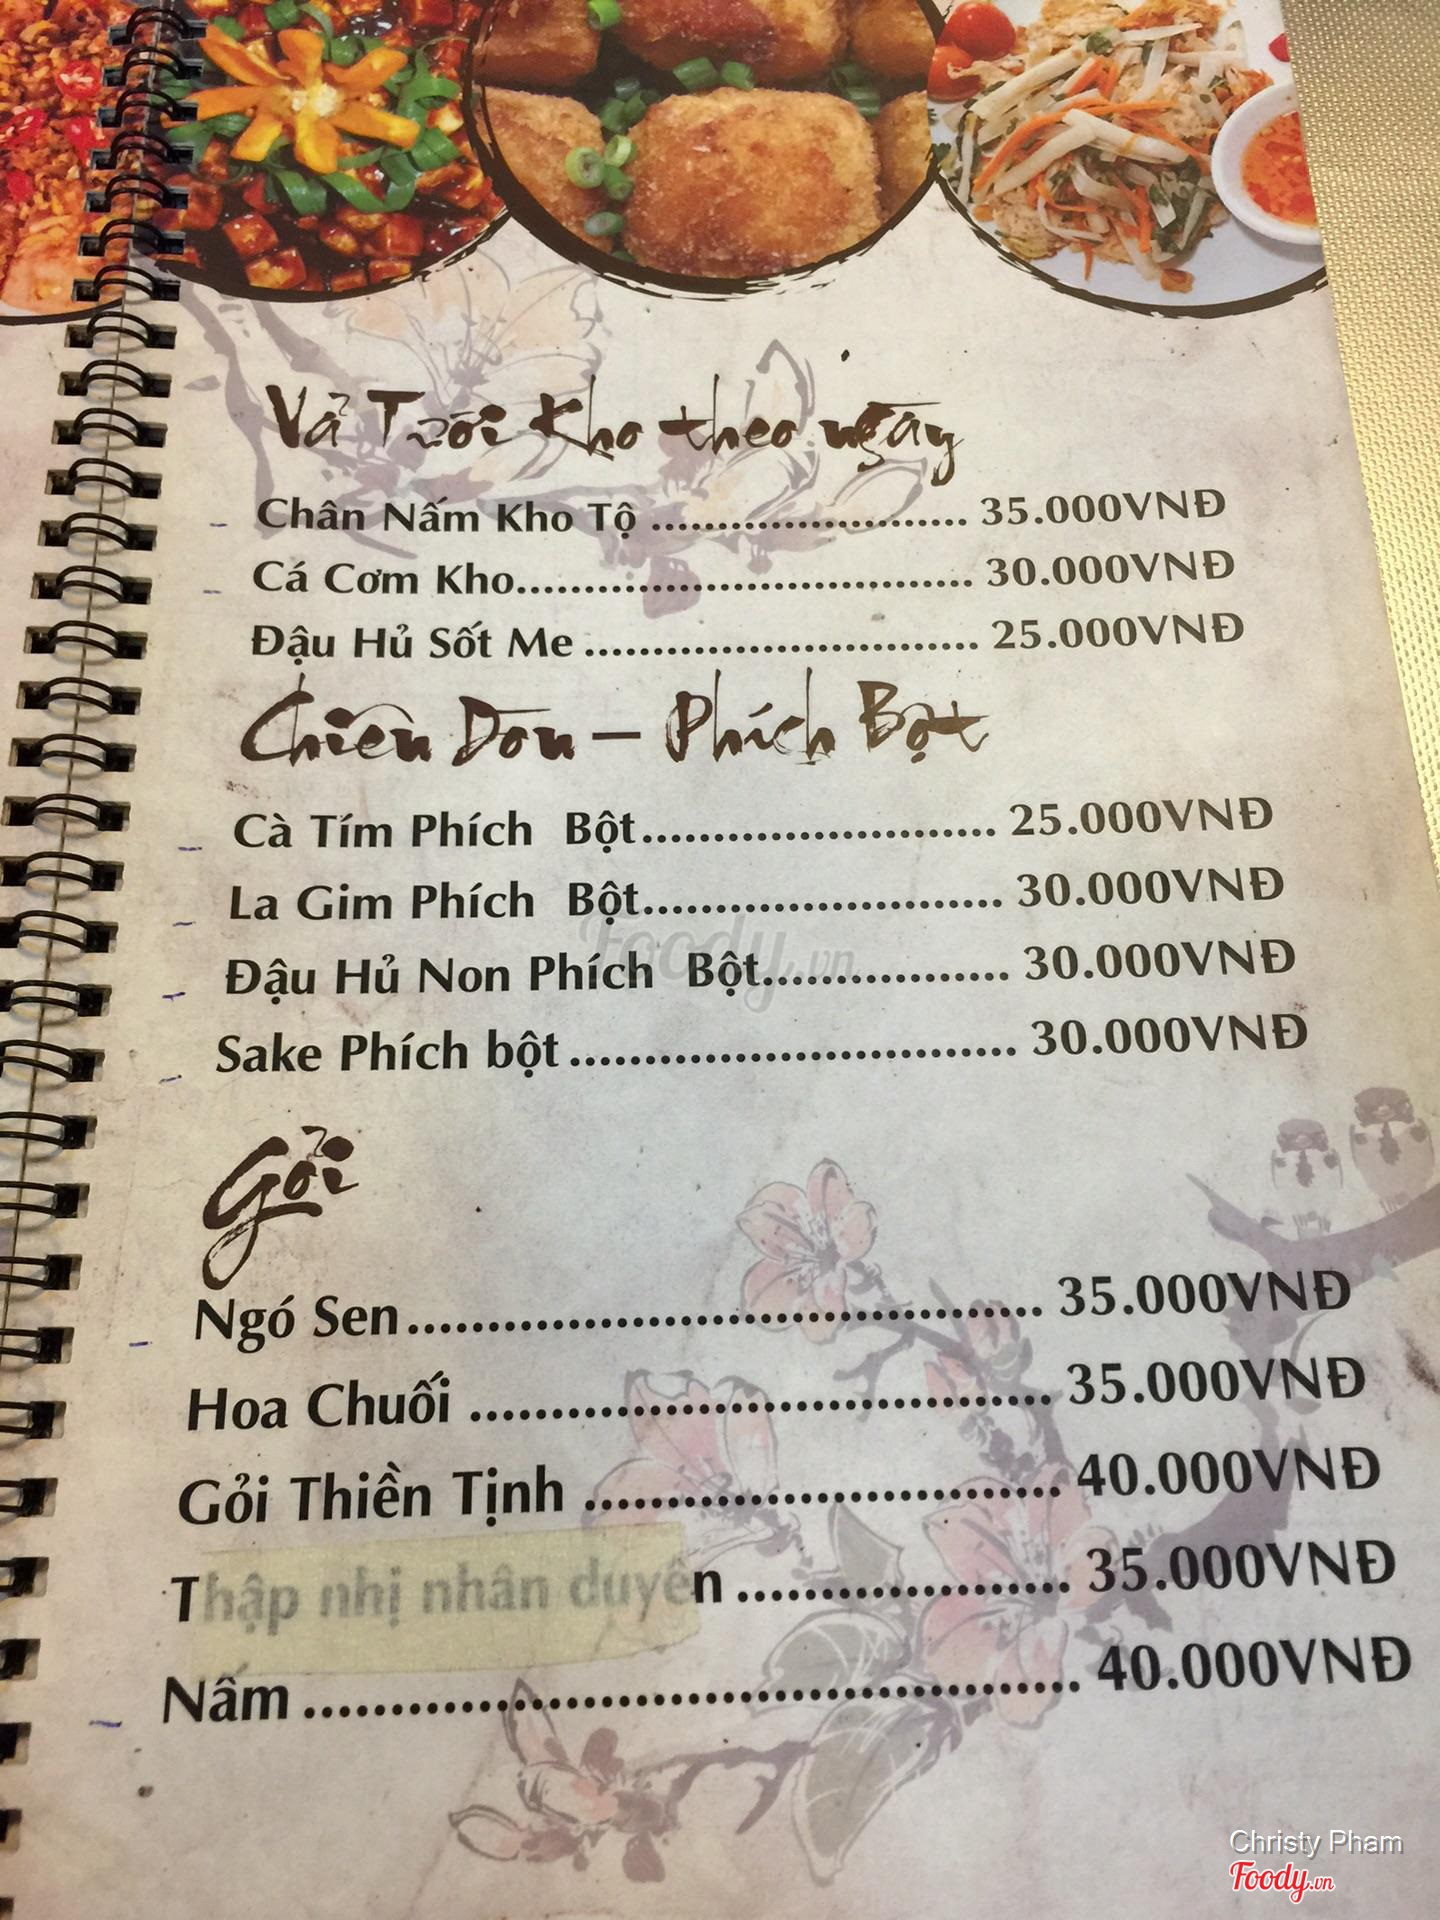 Vả Tươi Kho theo ngày
Chân Nấm Kho Tộ ........................ 35.000VNĐ
Cá Cơm Kho.................................. 30.000VNĐ
Đậu Hủ Sốt Me .............................. 25.000VNĐ
Chiên Dòn – Phích Bột
Cà Tím Phích Bột.......................... 25.000VNĐ
La Gim Phích Bột.......................... 30.000VNĐ
Đậu Hủ Non Phích Bột.................. 30.000VNĐ
Sake Phích bột ................................ 30.000VNĐ
Gỏi
Ngó Sen........................................ 35.000VNĐ
Hoa Chuối .................................... 35.000VNĐ
Gỏi Thiền Tịnh .............................. 40.000VNĐ
Thập nhị nhân duyên .................... 35.000VNĐ
Nấm ................................................ 40.000VNĐ
Foody.vn
Christy Pham
Foody.vn